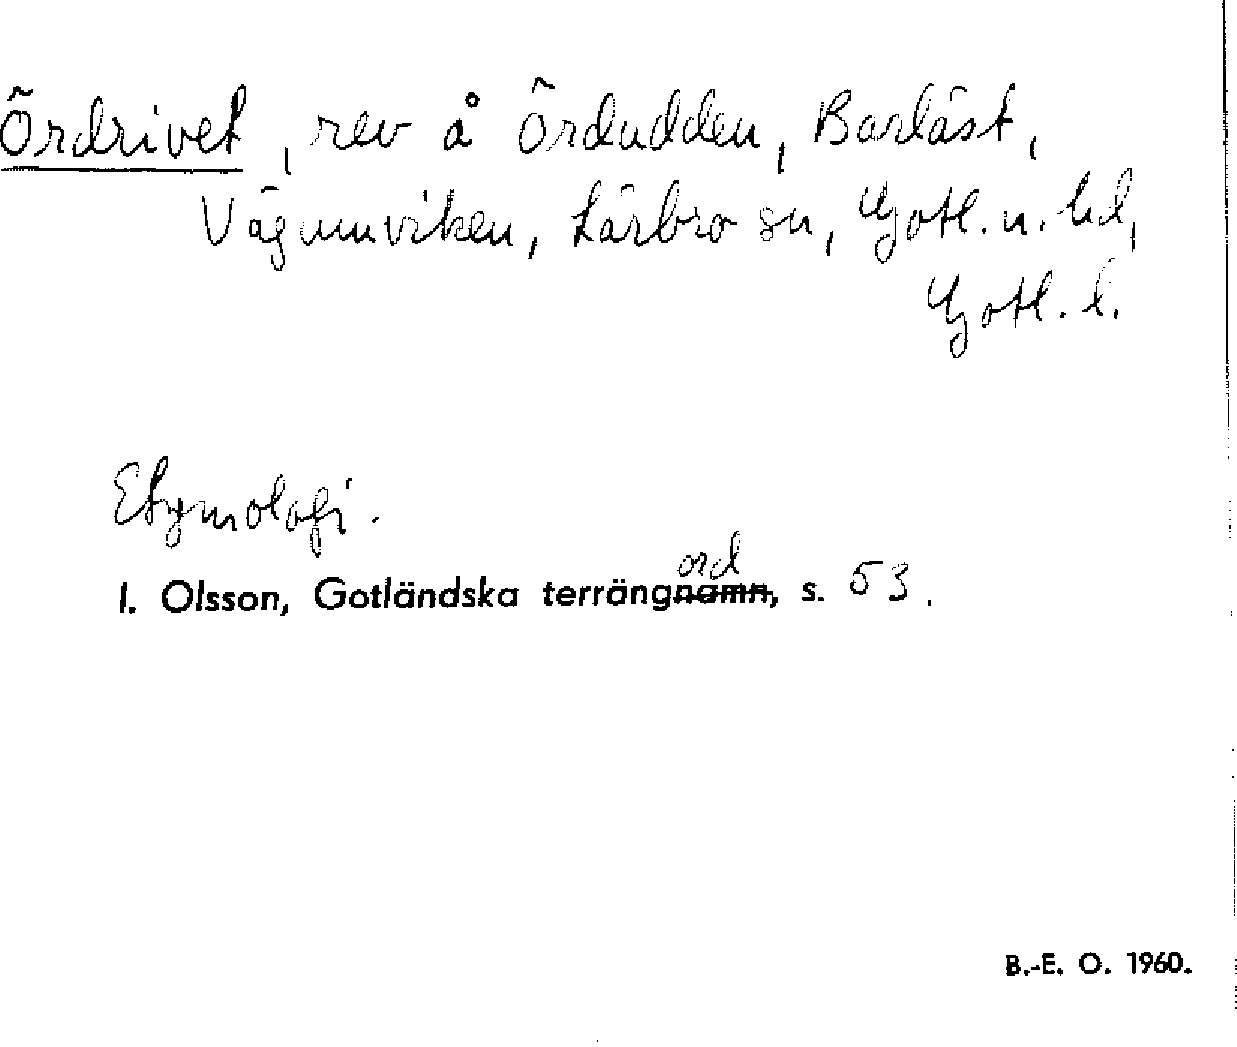 Ördrivet, rev å Ördudden, Barläst,
Vägumeviken, Lärbro sn, Gotl. n. hd,
Gotl. l.
Etymologi.
ord
I. Olsson, Gotländska terrängnamn, s. 53.
B.-E. O. 1960.